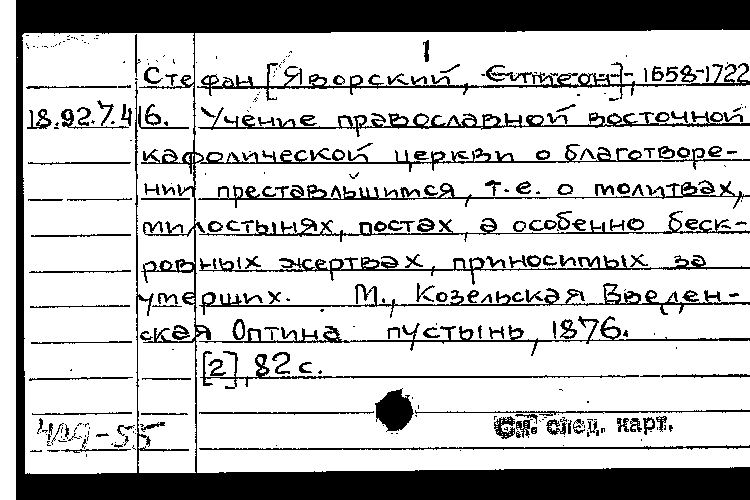 1
Стефан [Яворский, Симеон], 1658-1722
18.92.7.416. Учение православной восточной
кафолической церкви о благотворе-
нии преставльшимся, т.е. о молитвах,
милостынях, постах, а особенно беск-
ровных жертвах, приносимых за
умерших. М., Козельская Введен-
ская Оптина пустынь, 1876.
[2], 82 с.
См. спец. карт.